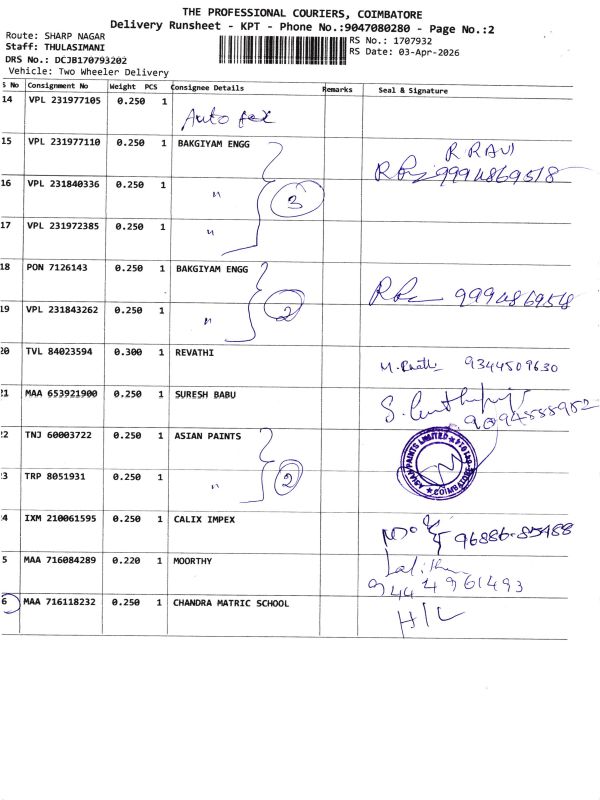 THE PROFESSIONAL COURIERS, COIMBATORE
Delivery Runsheet - KPT - Phone No.:9047080280 - Page No.:2
Route: SHARP NAGAR
RS No.: 1707932
Staff: THULASIMANI
RS Date: 03-Apr-2026
DRS No.: DCJB170793202
Vehicle: Two Wheeler Delivery
S No Consignment No Weight PCS Consignee Details Remarks Seal & Signature
14 VPL 231977105 0.250 1
15 VPL 231977110 0.250 1 BAKGIYAM ENGG R RAVI
9994869518
16 VPL 231840336 0.250 1 " 3
17 VPL 231972385 0.250 1 "
18 PON 7126143 0.250 1 BAKGIYAM ENGG
19 VPL 231843262 0.250 1 " 2
20 TVL 84023594 0.300 1 REVATHI 9344509630
21 MAA 653921900 0.250 1 SURESH BABU
22 TNJ 60003722 0.250 1 ASIAN PAINTS ASIAN PAINTS LIMITED
23 TRP 8051931 0.250 1 " 2
24 IXM 210061595 0.250 1 CALIX IMPEX
25 MAA 716084289 0.220 1 MOORTHY
9444961493
26 MAA 716118232 0.250 1 CHANDRA MATRIC SCHOOL